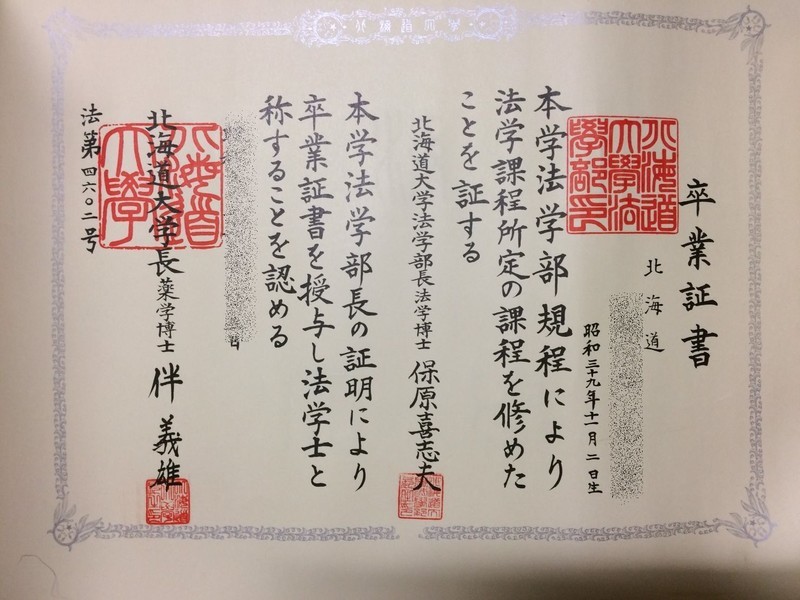 卒業証書
北海道
昭和三十九年十一月二日生
北海道大學法學部印
本学法学部規程により
法学課程所定の課程を修めた
ことを証する
北海道大学法学部長法学博士 保原喜志夫
本学法学部長の証明により
卒業証書を授与し法学士と
称することを認める
北海道大学長薬学博士 伴義雄
法第四六〇二号